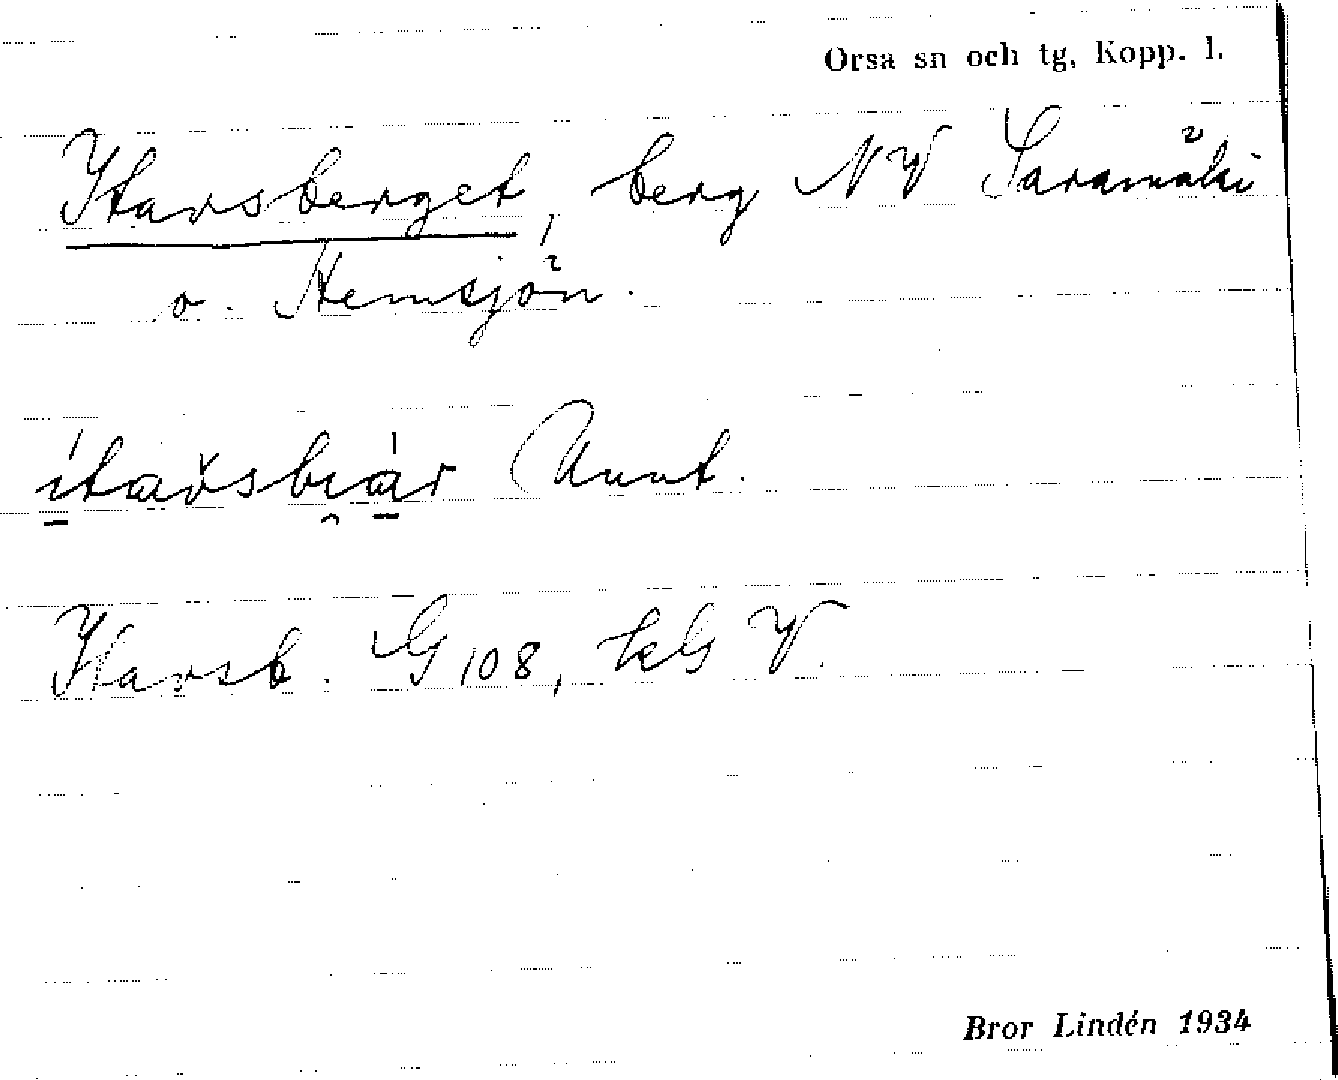 Orsa sn och tg, Kopp. l.
Itarsberget, berg NV Saramäki
o. Hemsjön.
ítarsbiár Unnt.
Itarsb. G 108, kG V.
Bror Lindén 1934